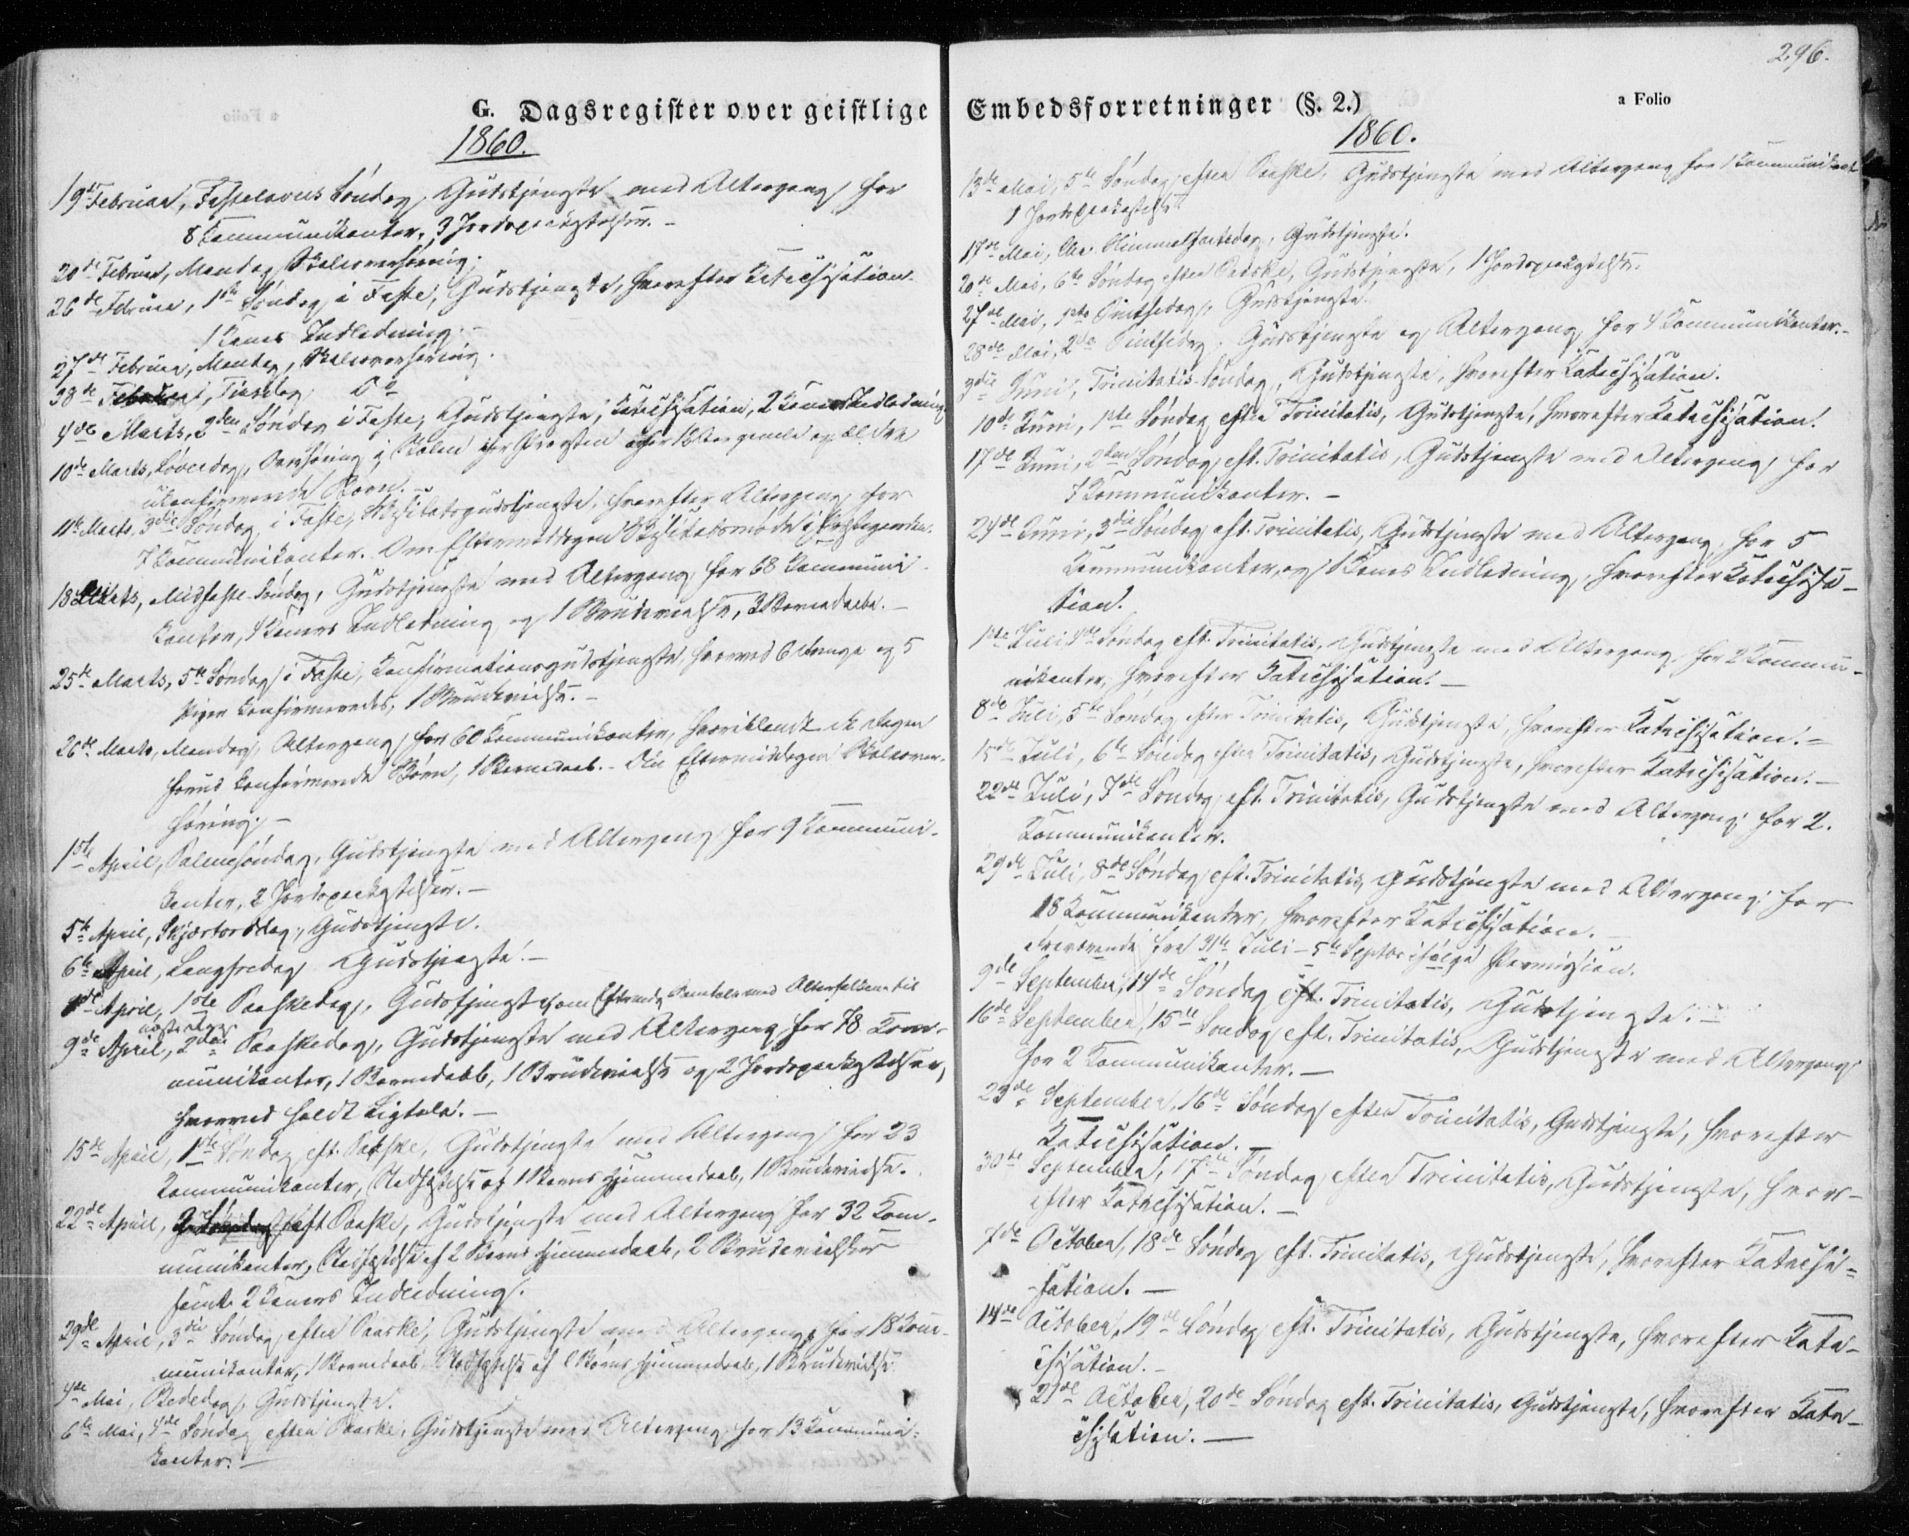 296.
G. Dagsregister over geistlige Embedsforretninger (§. 2.) a Folio
1860.
19de Februar, Fastelavns Søndag, Gudstjeneste med Altergang for
8 Kommunikanter. 3 Jordspaakastelser. -
20de Februar, Mandag, Skoleoverhøring.
26de Februar, 1ste Søndag i Faste, Gudstjeneste, hvorefter Katechisation.
1 Kones Indledning. -
27de Februar, Mandag, Skoleoverhøring.
28de Februar, Tirsdag, Do
4de Marts, 2den Søndag i Faste, Gudstjeneste, Katechisation, 2 Koners Indledning
10de Marts, Løverdag, Overhøring i Skolen
ukonfirmerede Børn. -
11te Marts, 3die Søndag i Faste, Visitatsgudstjeneste, hvorefter Altergang for
7 Kommunikanter. Om Eftermiddagen
18de Marts, Midfaste Søndag, Gudstjeneste med Altergang for 68 Kommuni-
kanter, 4 Koners Indledning og 1 Brudevielse, 3 Barnedaabe. -
25de Marts, 5te Søndag i Faste, Konfirmationsgudstjeneste, hvorved 6 Drenge og 5
Piger konfirmeredes, 1 Brudevielse. -
26de Marts, Mandag, Altergang for 60 Kommunikanter, hvoriblandt de Dagen
forud konfirmerede Børn, 1 Barnedaab. - Om Eftermiddagen Skoleover-
høring. -
1ste April, Palmesøndag, Gudstjeneste med Altergang for 9 Kommuni-
kanter, 2 Jordspaakastelser. -
5te April, Skjærtorsdag, Gudstjeneste.
6te April, Langfredag Gudstjeneste. -
8de April, 1ste Paaskedag, Gudstjeneste,
9de April, 2den Paaskedag, Gudstjeneste med Altergang for 78 Kom-
munikanter, 1 Barnedaab, 1 Brudevielse og 2 Jordspaakastelser,
hvorved holdt Ligtale. -
15de April, 1ste Søndag eft. Paaske, Gudstjeneste med Altergang for 23
Kommunikanter, Stadfæstelse af 1 Barns Hjemmedaab, 1 Brudevielse.
22de April, eft Paaske, Gudstjeneste med Altergang for 32 Kom-
munikanter, Stadfæstelse af 2 Børns Hjemmedaab, 2 Brudevielser
samt 2 Koners Indledning.
29de April, 3die Søndag efter Paaske, Gudstjeneste med Altergang for 18 Kom-
munikanter, 1 Barnedaab, Stadfæstelse af 1 Barns Hjemmedaab, 1 Brudevielse
4de Mai, Bededag, Gudstjeneste.
6te Mai, 4de Søndag efter Paaske, Gudstjeneste med Altergang for 13 Kommuni-
kanter. -
1860.
13de Mai, 5te Søndag efter Paaske, Gudstjeneste med Altergang for 1 Kommunikant
1 Jordspaakastelse
17de Mai, Chr. Himmelfartsdag, Gudstjeneste.
20de Mai, 6te Søndag efter Paaske, Gudstjeneste, 1 Jordspaakastelse.
27de Mai, 1ste Pintsedag, Gudstjeneste.
28de Mai, 2den Pintsedag, Gudstjeneste og Altergang for 4 Kommunikanter. -
3die Juni, Trinitatis Søndag, Gudstjeneste, hvorefter Katechisation.
10de Juni, 1ste Søndag efter Trinitatis, Gudstjeneste, hvorefter Katechisation.
17de Juni, 2den Søndag eft. Trinitatis, Gudstjeneste med Altergang for
7 Kommunikanter. -
24de Juni, 3die Søndag eft. Trinitatis, Gudstjeneste med Altergang for 5
Kommunikanter, og 1 Kones Indledning, hvorefter Katechisa-
tion.
1ste Juli, 4de Søndag eft. Trinitatis, Gudstjeneste med Altergang for 2 Kommu-
nikanter, hvorefter Katechisation. -
8de Juli, 5te Søndag efter Trinitatis, Gudstjeneste, hvorefter Katechisation. -
15de Juli, 6te Søndag efter Trinitatis, Gudstjeneste, hvorefter Katechisation. -
22de Juli, 7de Søndag eft. Trinitatis, Gudstjeneste med Altergang for 2.
Kommunikanter.
29de Juli, 8de Søndag eft. Trinitatis, Gudstjeneste med Altergang for
18 Kommunikanter, hvorefter Katechisation. -
Fraværende fra 31te Juli - 5te Septbr ifølge Permission.
9de September, 14de Søndag eft. Trinitatis, Gudstjeneste. -
16de September, 15de Søndag eft. Trinitatis, Gudstjeneste med Altergang
for 2 Kommunikanter. -
23de September, 16de Søndag efter Trinitatis, Gudstjeneste, hvorefter
Katechisation. -
30te September, 17de Søndag efter Trinitatis, Gudstjeneste, hvor-
efter Katechisation. -
7de October, 18de Søndag eft. Trinitatis, Gudstjeneste, hvorefter Katechi-
sation. -
14de October, 19de Søndag eft. Trinitatis, Gudstjeneste, hvorefter Kate-
chisation. -
21de October, 20de Søndag eft. Trinitatis, Gudstjeneste, hvorefter Kate-
chisation. -